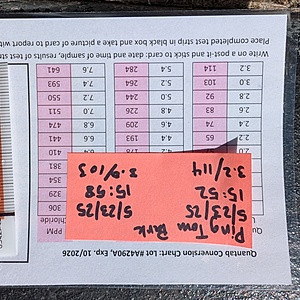 Quantab Conversion Chart: Lot #AA4290A, Exp. 10/2026
PPM
hloride
306
329
354
381
Ping Tom Park
5/23/25 5/23/25
15:52 15:58
3.2/114 3.0/103
178 6.4 410
2.2 65 4.4 193 6.6 441
2.4 74 4.6 209 6.8 474
2.6 83 4.8 226 7.0 511
2.8 92 5.0 244 7.2 550
3.0 103 5.2 264 7.4 593
3.2 114 5.4 284 7.6 641
Write on a post-it and stick to card: date and time of sample, results of test st
Place completed test strip in black box and take picture of card to report wit